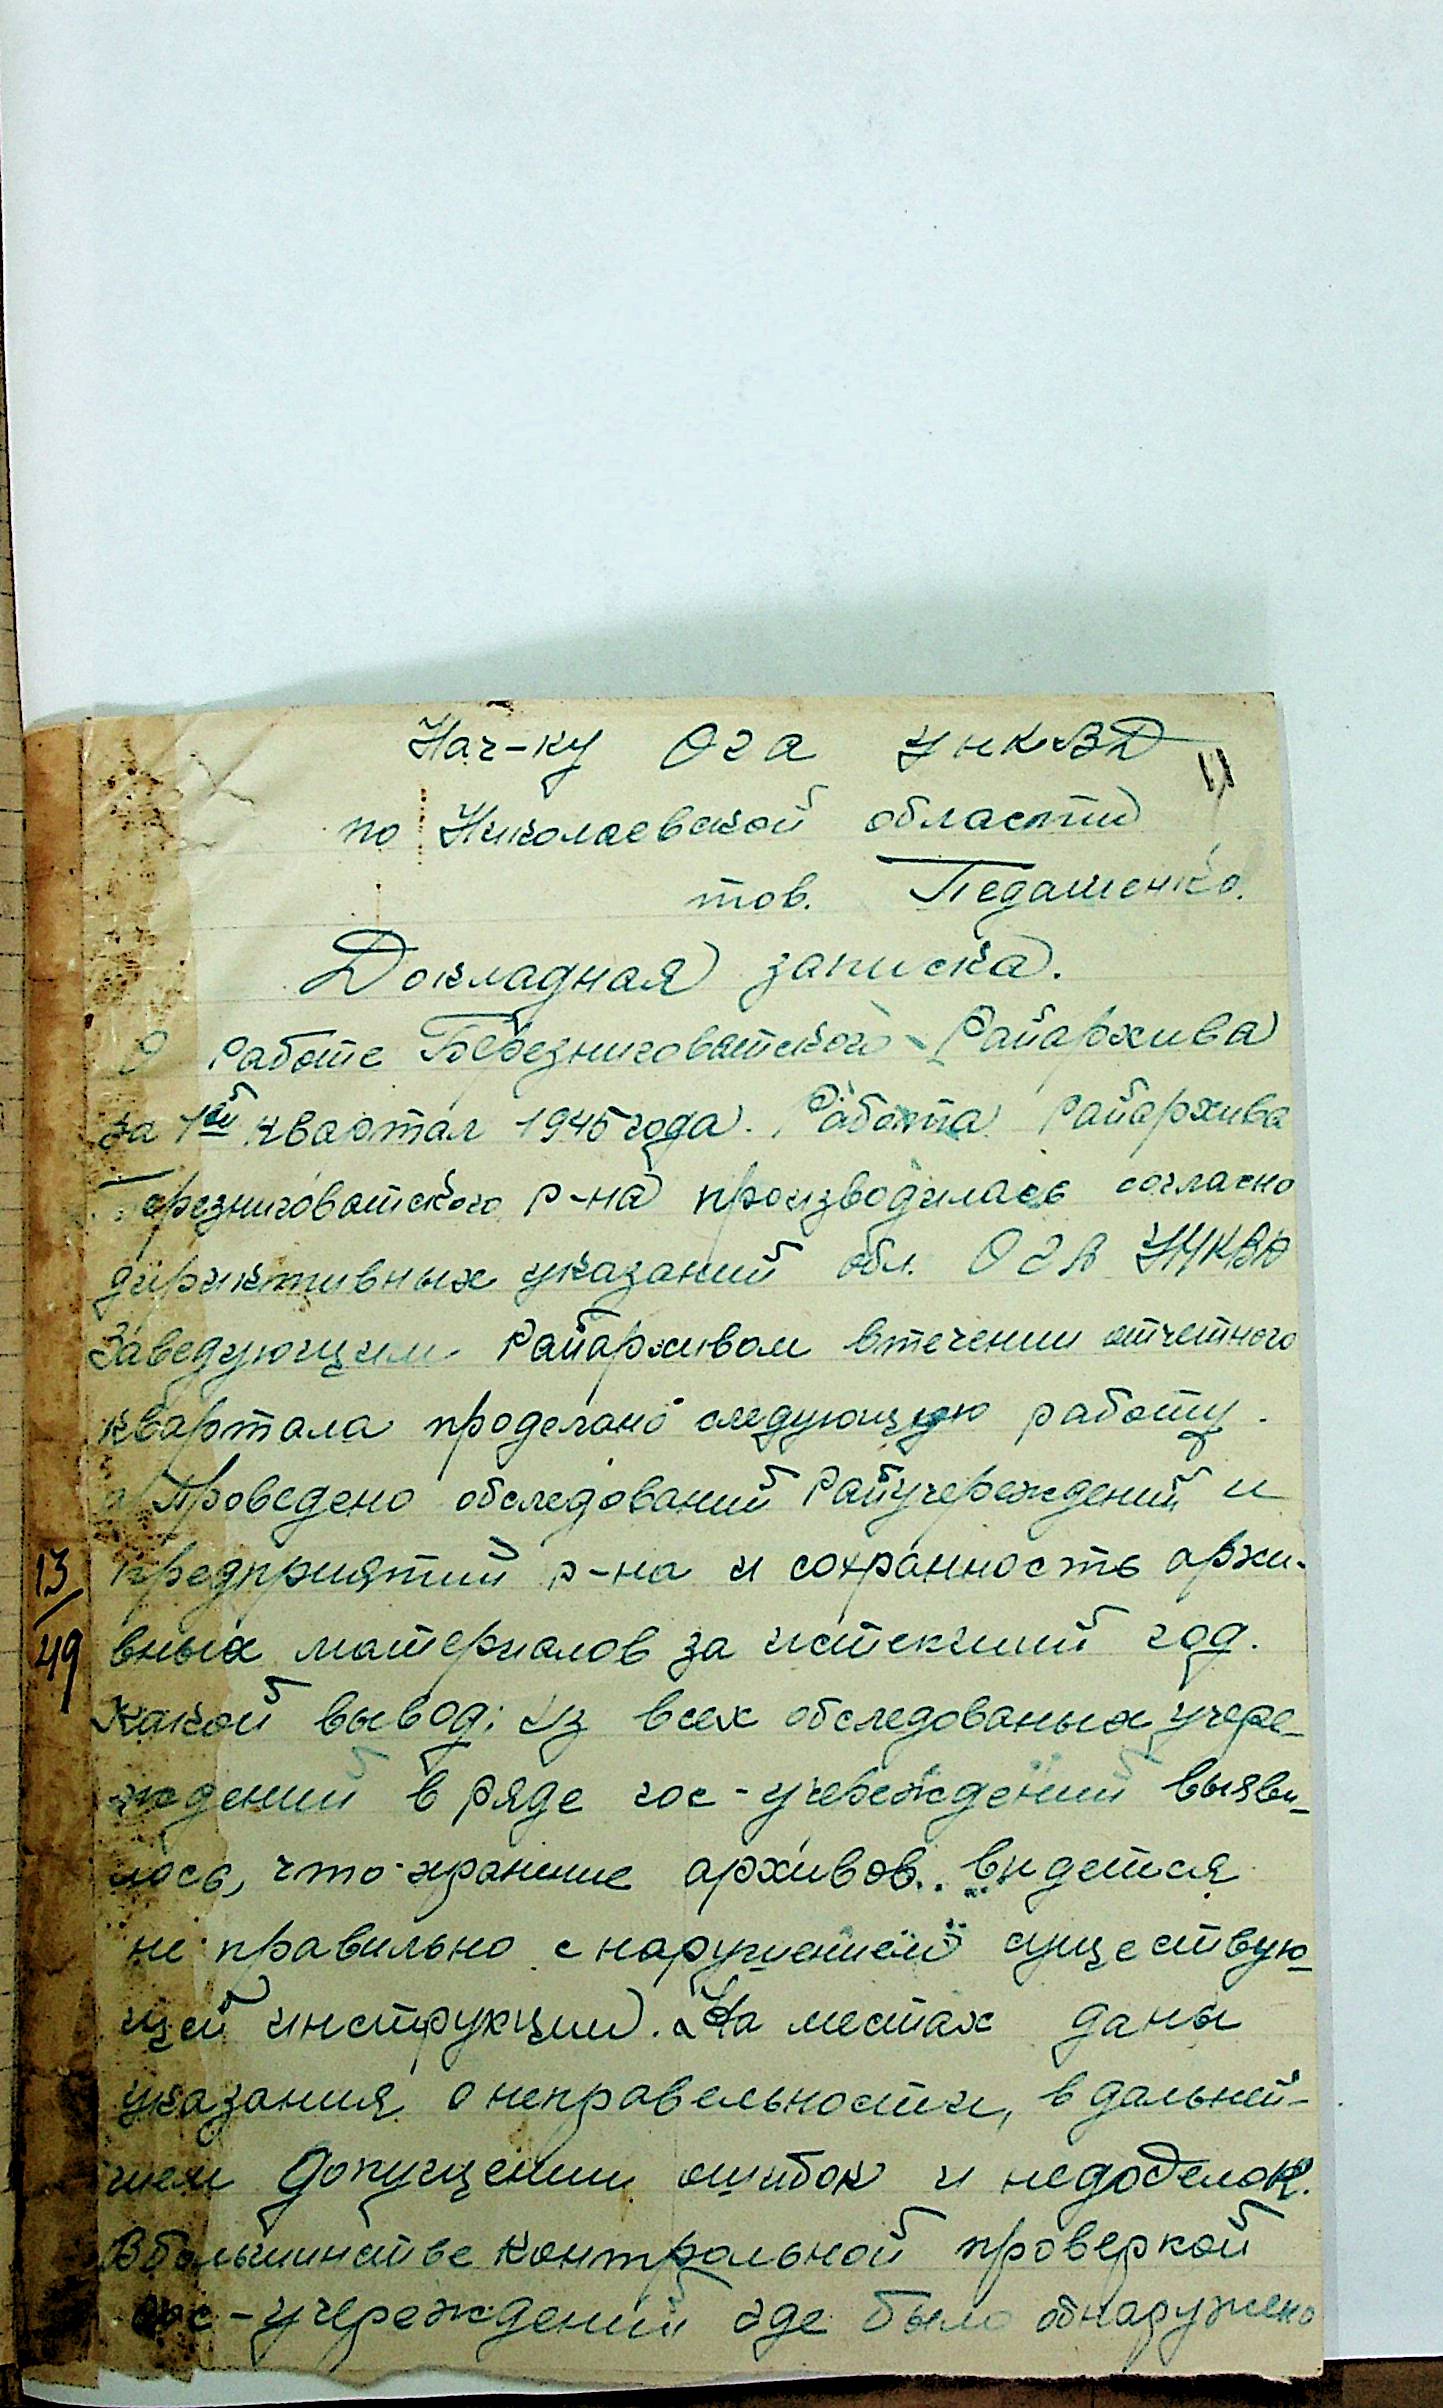 Нач-ку ОГА УНКВД
по Николаевской области
тов. Педашенко.
Докладная записка.
О работе Березниговатского Райархива
за 1ый квартал 1945 года. Работа Райархива
Березниговатского р-на производилась согласно
дириктивных указаний обл. ОГА УНКВД
Заведующим Райархивом втечении отчетного
квартала проделано следующую работу.
а) Проведено обследований Райучереждений и
предприятий р-на и сохранность архи-
вных материалов за истекший год.
Какой вывод: Из всех обследованых учере-
ждений в ряде гос-учереждений выяви-
лось, что хранение архивов видется
не правильно с нарушением существую-
щей инструкции. На местах даны
указания о неправельности, в дальней-
шем допущении ошибок и недоделок.
В большинстве контрольной проверкой
гос-учереждений где было обнаружено
13/49